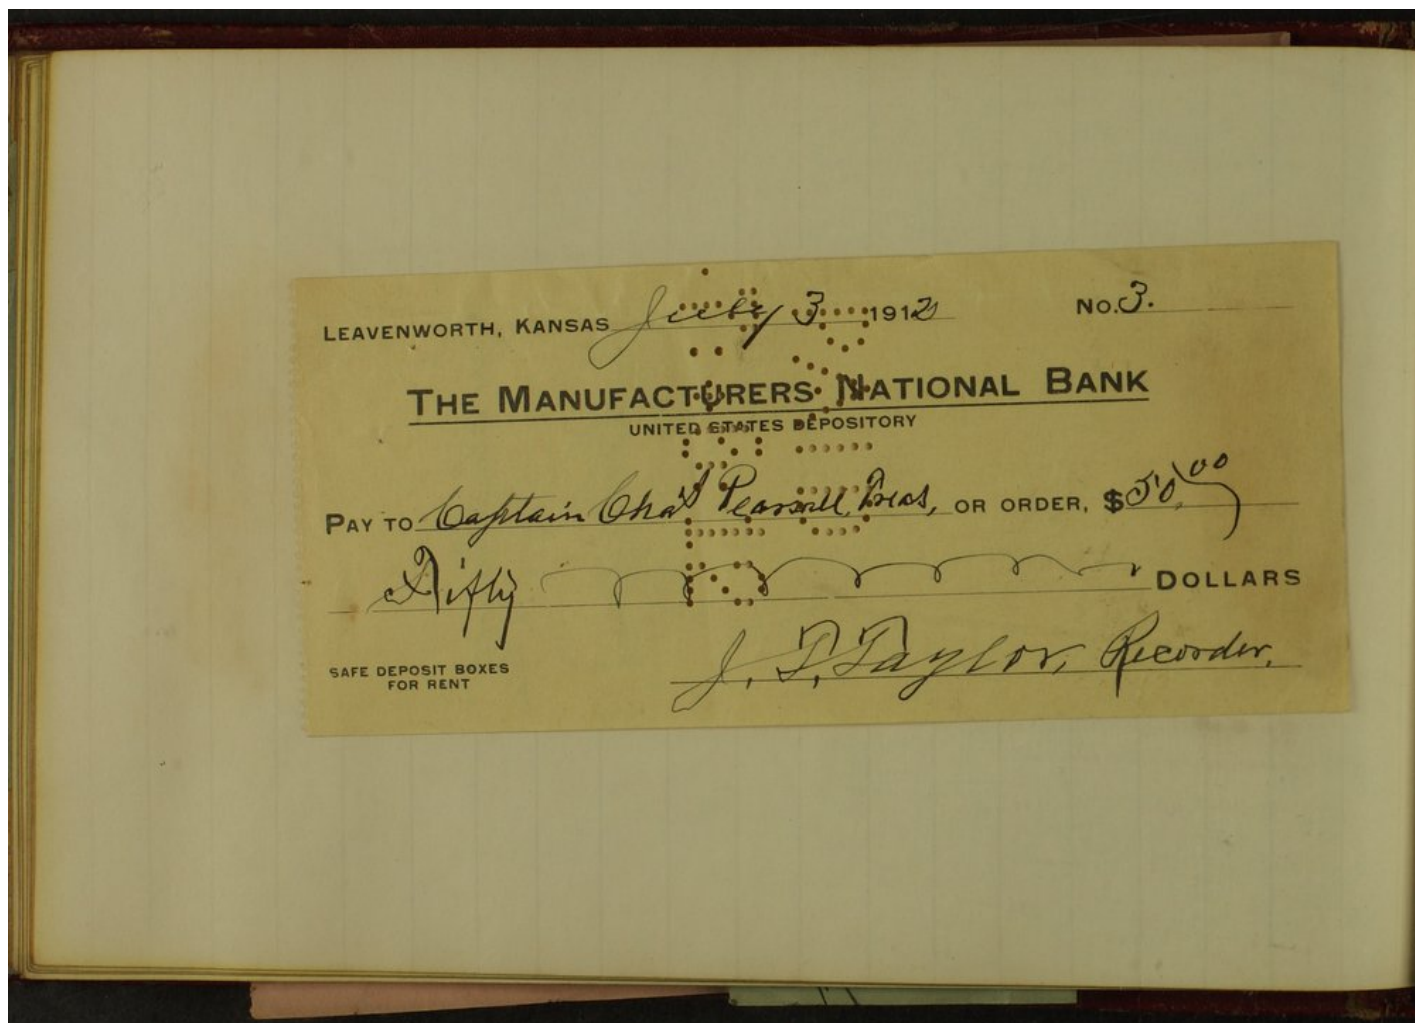 LEAVENWORTH, KANSAS July 3 1912 No. 3.
THE MANUFACTURERS NATIONAL BANK
UNITED STATES DEPOSITORY
PAY TO Captain Cha's Pearsall, Treas, OR ORDER, $50.00
Fifty DOLLARS
SAFE DEPOSIT BOXES
FOR RENT
J. T. Taylor, Recorder.